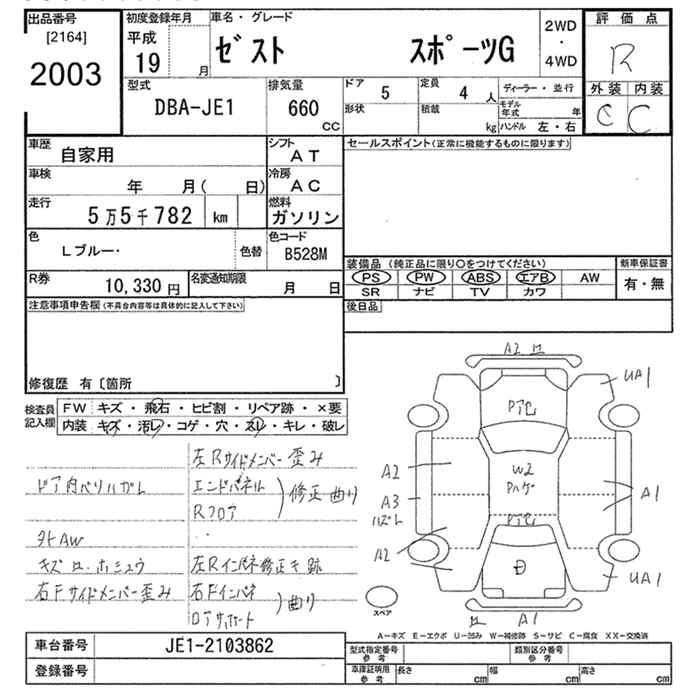 出品番号 初度登録年月 車名・グレード 2WD・4WD 評価点
[2164] 平成 19 月 ゼスト スポーツG R
2003 型式 排気量 ドア 5 定員 4人 ディーラー・並行 外装 内装
DBA-JE1 660 CC 形状 積載 kg モデル年式 年 C C
ハンドル 左・右
車歴 自家用 シフト AT セールスポイント(正常に機能するものに限ります)
車検 年 月( 日) 冷房 AC
走行 5万5千782 km 燃料 ガソリン
色 Lブルー・ 色替 色コード B528M
装備品 (純正品に限り○をつけてください) 新車保証書
R券 10,330円 名変通知期限 月 日 PS PW ABS エアB AW 有・無
SR ナビ TV カワ
注意事項申告欄(不具合内容等は具体的に記入して下さい) 後日品
修復歴 有〔箇所 〕
検査員記入欄 FW キズ・飛石・ヒビ割・リペア跡・×要
内装 キズ・汚レ・コゲ・穴・スレ・キレ・破レ
左Rサイドメンバー歪み
ドア内ベリハガレ エンドパネル 修正曲り
Rフロア
外AW
キズ
左Rインパネ修正キ跡
右Fサイドメンバー歪み 右Fインパネ 曲り
ロアサポート
A2
UA1
P
A2
W2
Pハゲ
A3
A1
A2
UA1
スペア
A1
A-キズ E-エクボ U-凹み W-補修跡 S-サビ C-腐食 XX-交換済
車台番号 JE1-2103862 型式指定番号 参考 類別区分番号 参考
登録番号 車庫証明用 参考 長さ cm 幅 cm 高さ cm